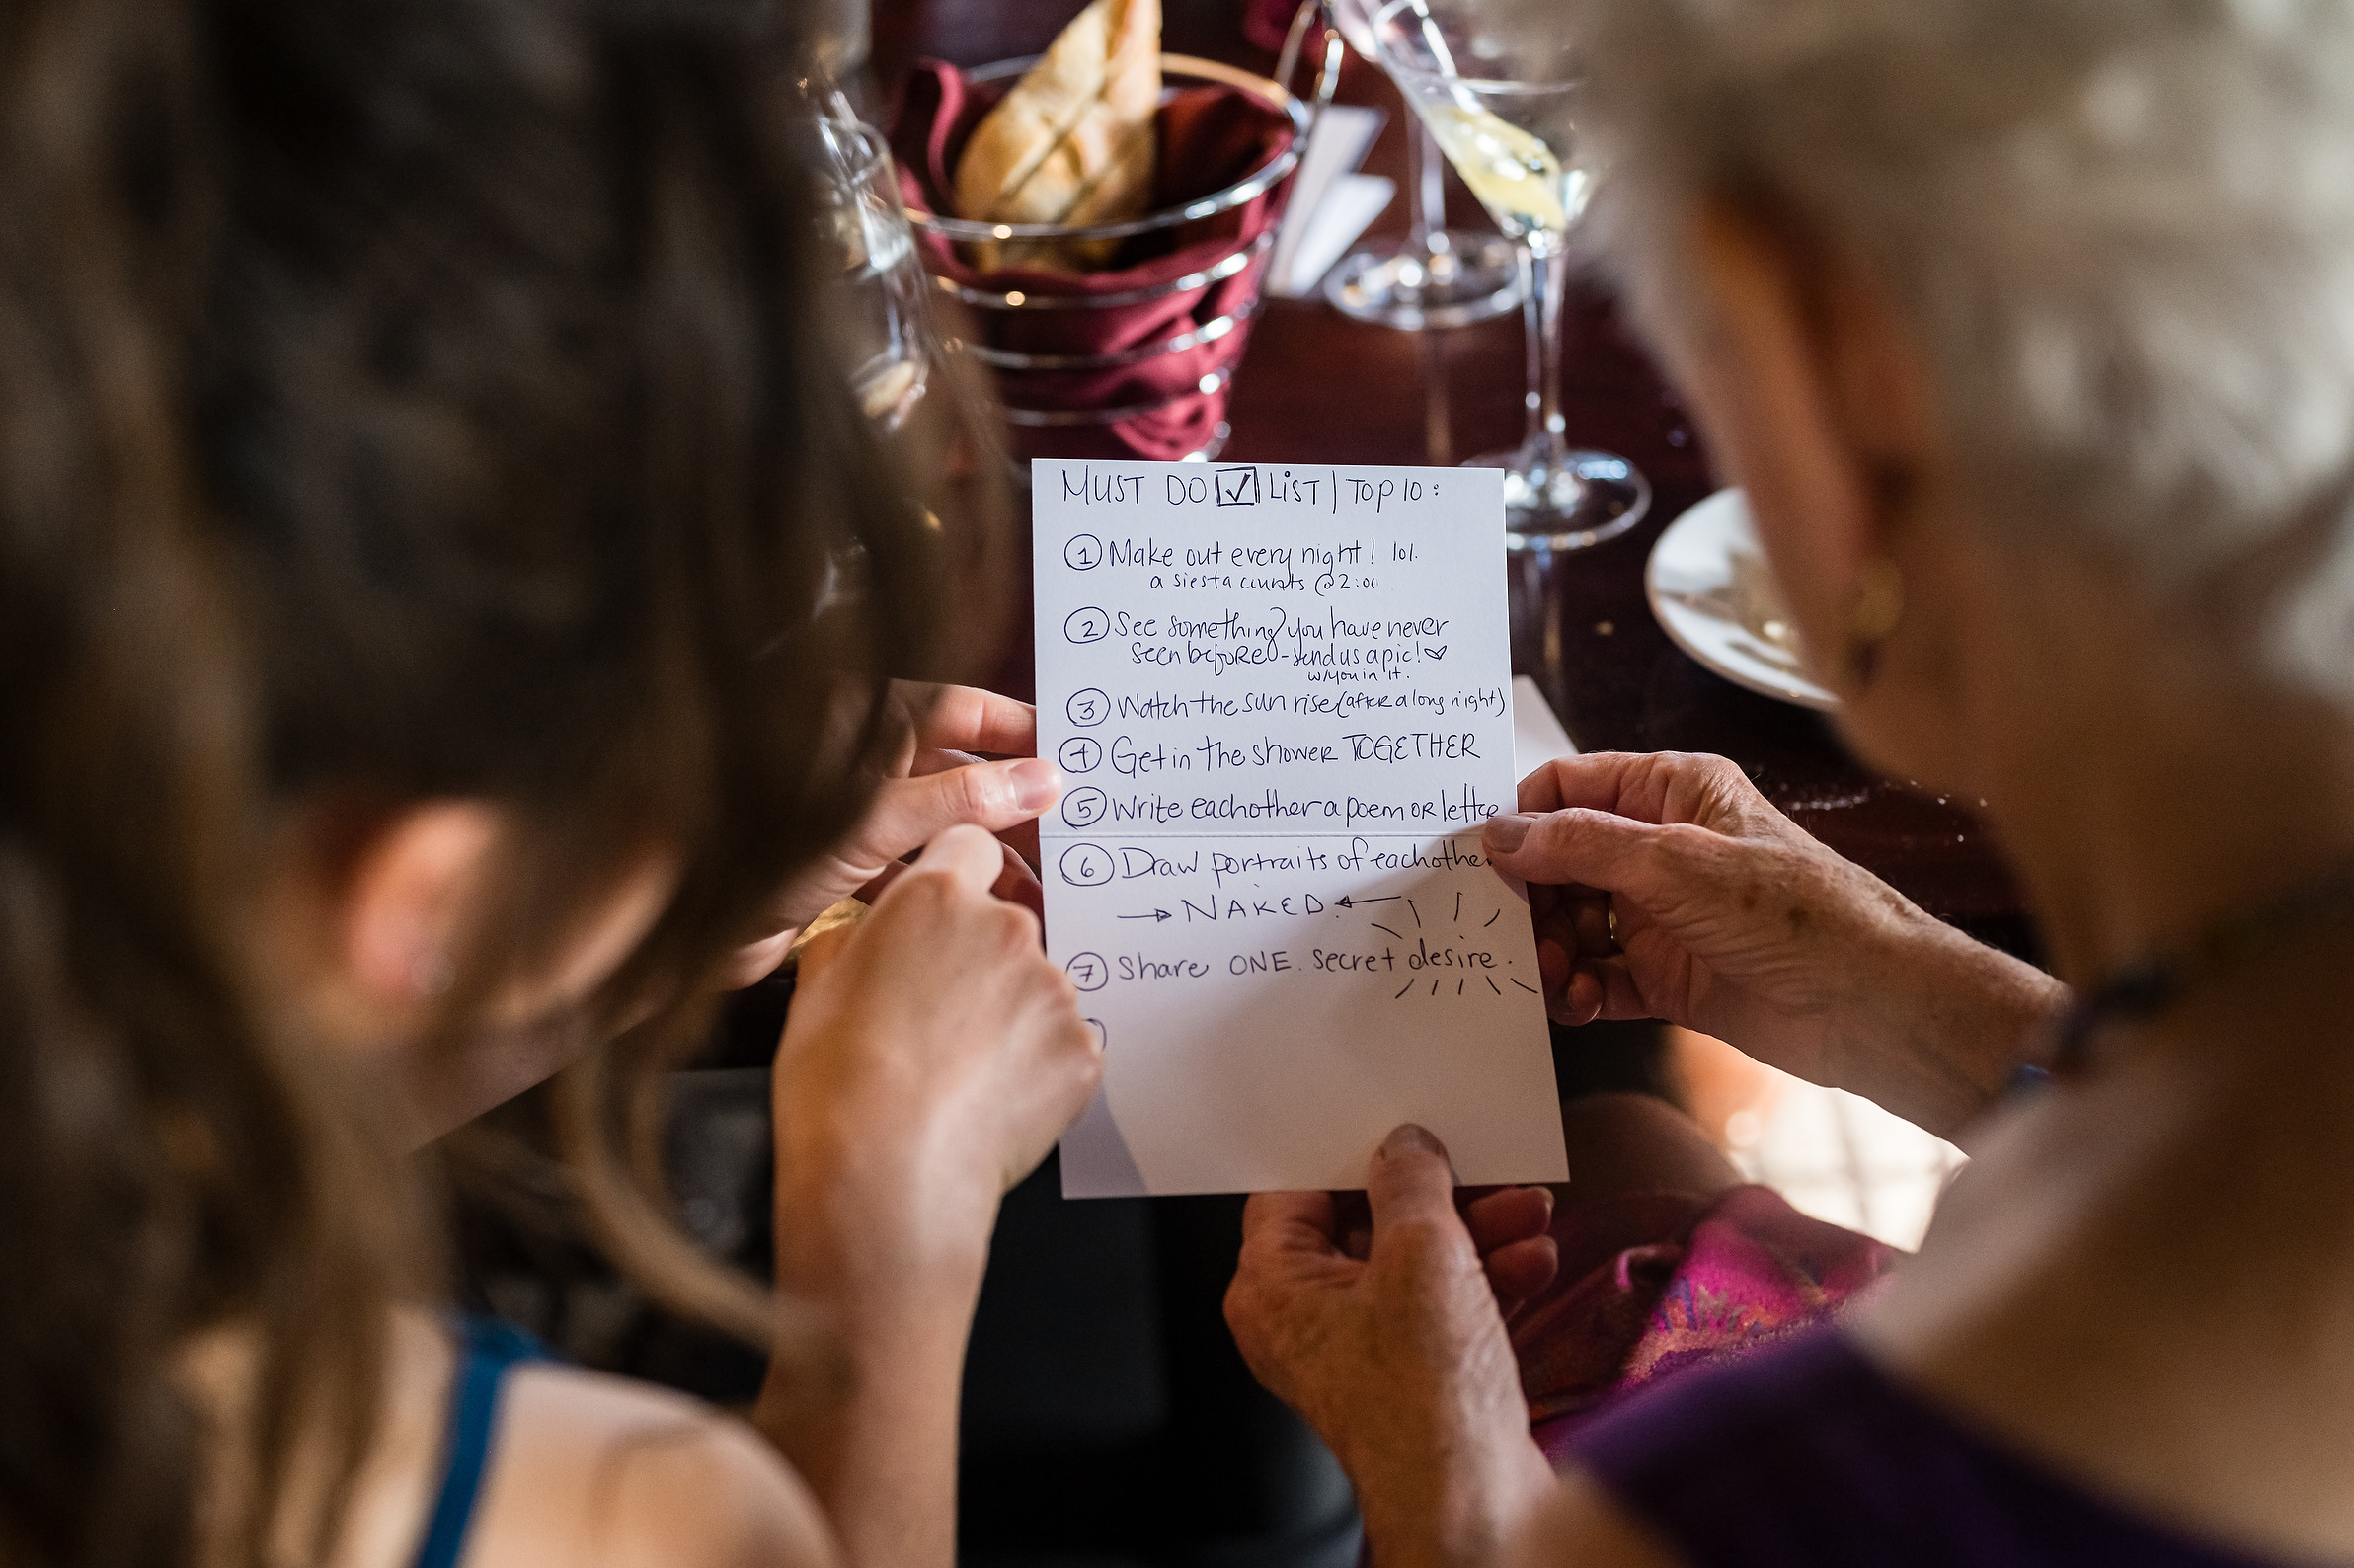 MUST DO ☑ LIST | TOP 10 :
① Make out every night! lol.
a siesta counts @2:00
② See something you have never
seen before - send us a pic! ♡
w/you in it.
③ Watch the sun rise (after a long night)
④ Get in the shower TOGETHER
⑤ Write eachother a poem OR letter
⑥ Draw portraits of eachother
→ NAKED. ←
⑦ Share ONE. secret desire.